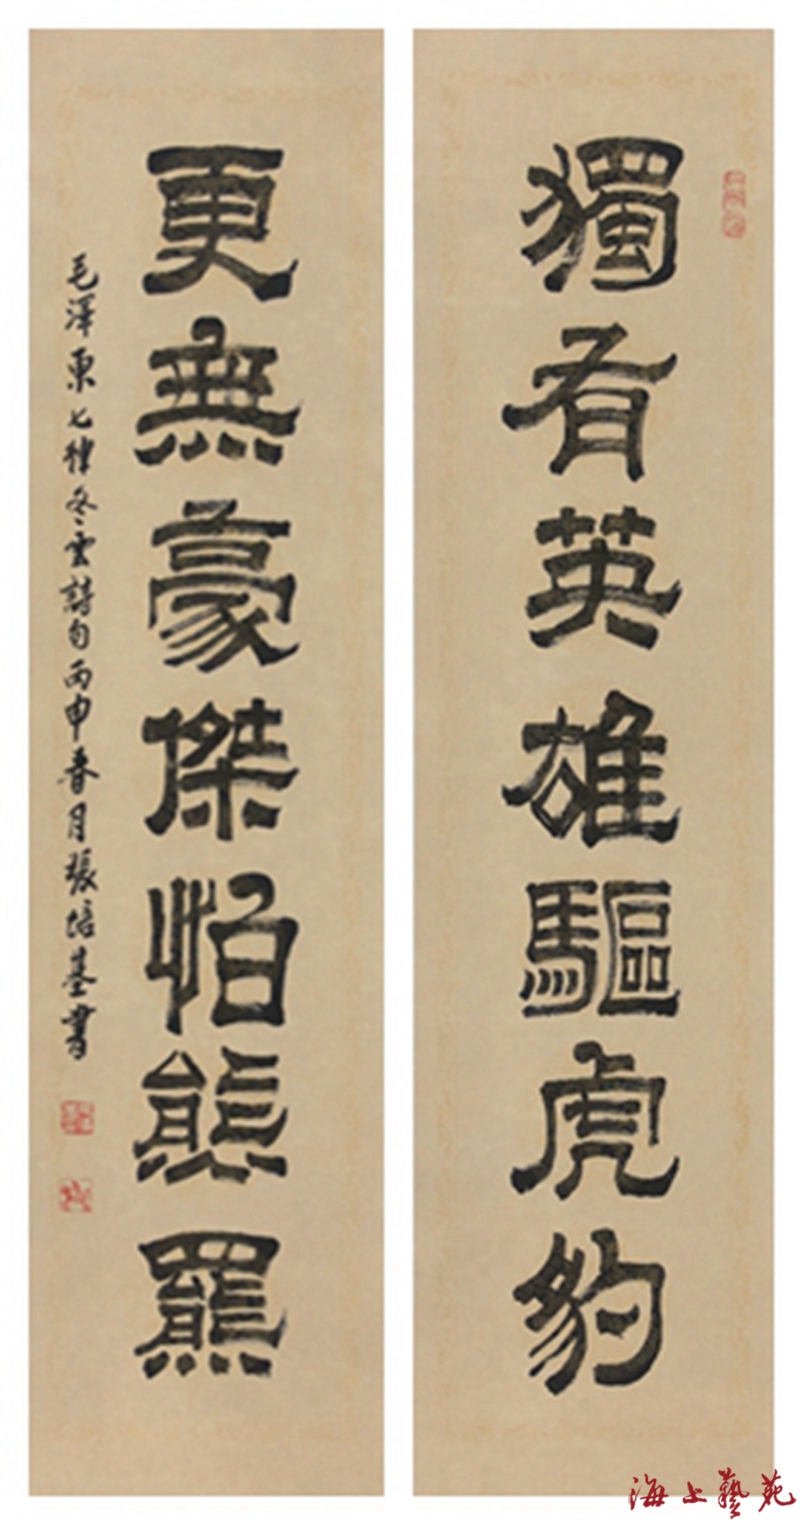 獨有英雄驅虎豹
更無豪傑怕熊羆
毛澤東七律冬雲詩句丙申春月張培基書
海上藝苑